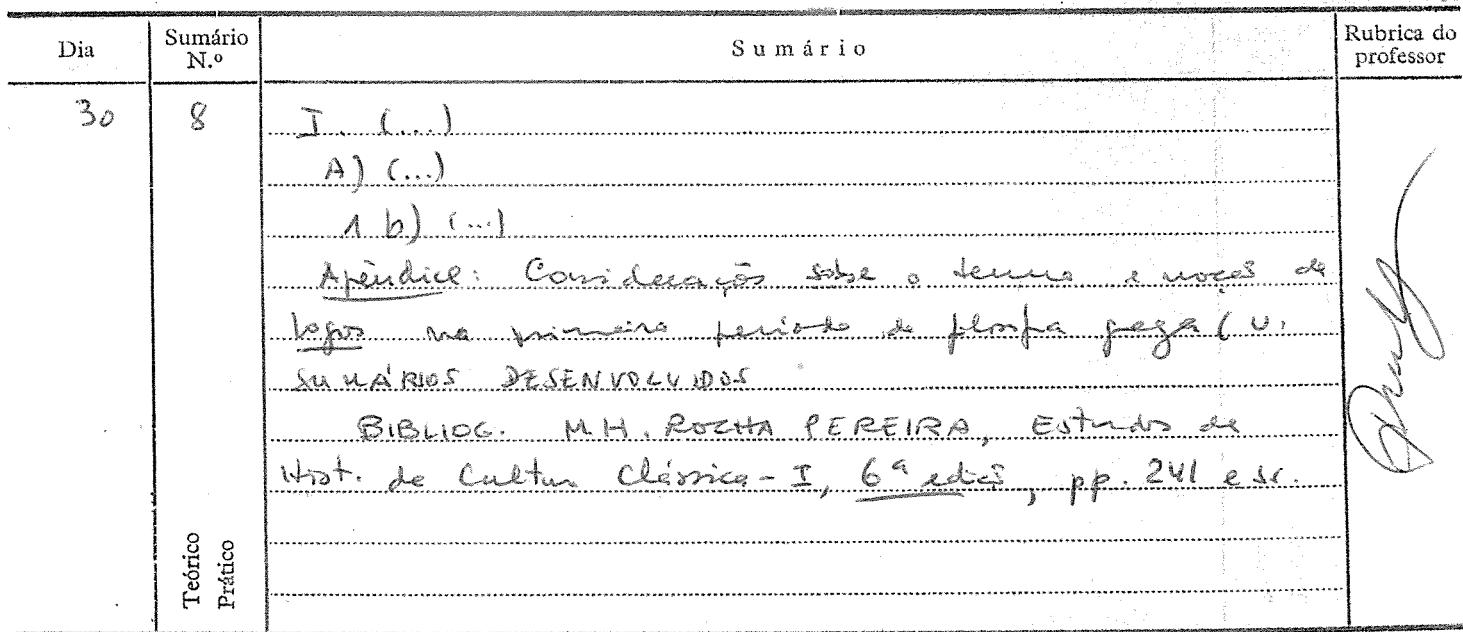 Dia Sumário N.º Sumário Rubrica do professor
30 8 I. (...)
A) (...)
1 b) (...)
Apêndice: Considerações sobre o termo e noção de
logos no primeiro período da filosofia grega (v.
SUMÁRIOS DESENVOLVIDOS
BIBLIOG. M.H. ROCHA PEREIRA, Estudos de
Hist. de Cultura Clássica - I, 6ª edição, pp. 241 e ss.
Teórico
Prático